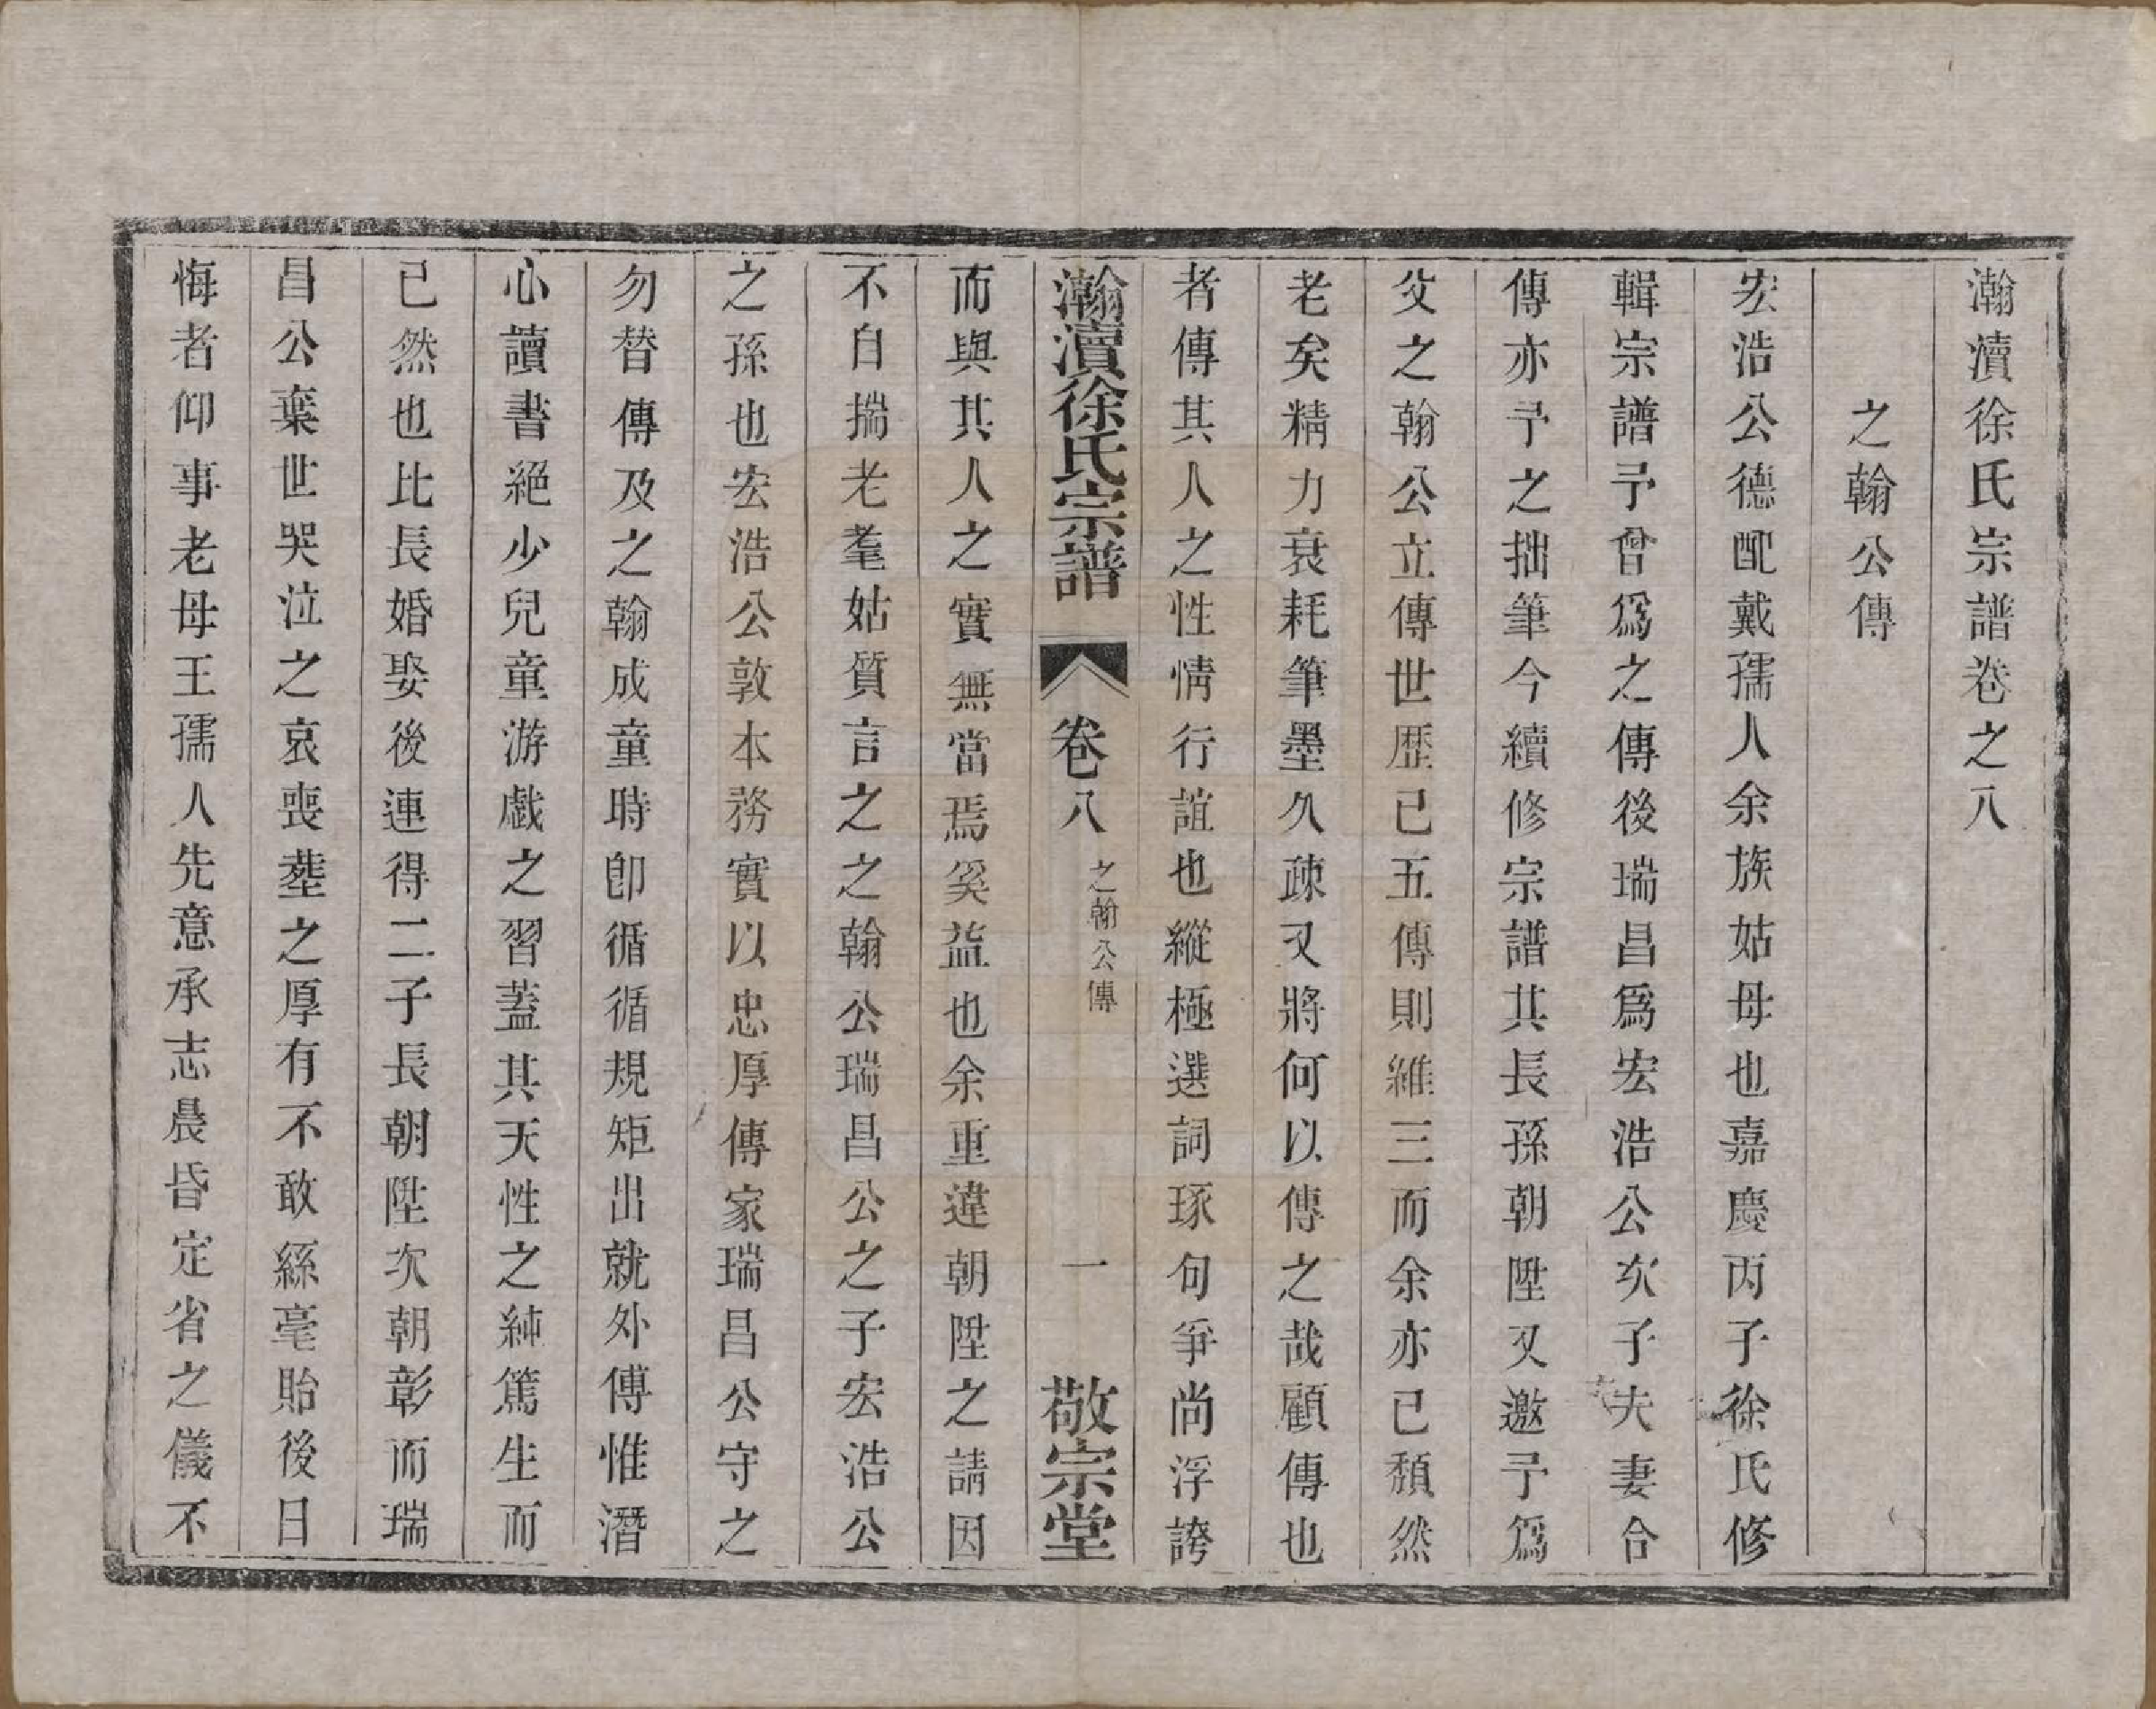 瀚瀆徐氏宗譜卷之八
之翰公傳
宏浩公德配戴孺人余族姑母也嘉慶丙子徐氏修
輯宗譜予曾爲之傳後瑞昌爲宏浩公次子夫妻合
傳亦予之拙筆今續修宗譜其長孫朝陞又邀予爲
父之翰公立傳世歷已五傳則維三而余亦已頹然
老矣精力衰耗筆墨久疎又將何以傳之哉顧傳也
者傳其人之性情行誼也縱極選詞琢句爭尚浮誇
瀚瀆徐氏宗譜 卷八 之翰公傳 一 敬宗堂
而與其人之實無當焉奚益也余重違朝陞之請因
不自揣老耄姑質言之之翰公瑞昌公之子宏浩公
之孫也宏浩公敦本務實以忠厚傳家瑞昌公守之
勿替傳及之翰成童時卽循循規矩出就外傅惟潛
心讀書絕少兒童游戲之習蓋其天性之純篤生而
已然也比長婚娶後連得二子長朝陞次朝彰而瑞
昌公棄世哭泣之哀喪塟之厚有不敢絲毫貽後日
悔者仰事老母王孺人先意承志晨昏定省之儀不